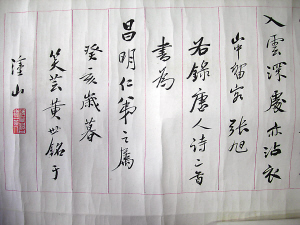 入雲深處亦沾衣
山中留客 張旭
右錄唐人詩二首
書為
昌明仁弟之屬
癸亥歲暮
笑芸黃世銘于
塗山